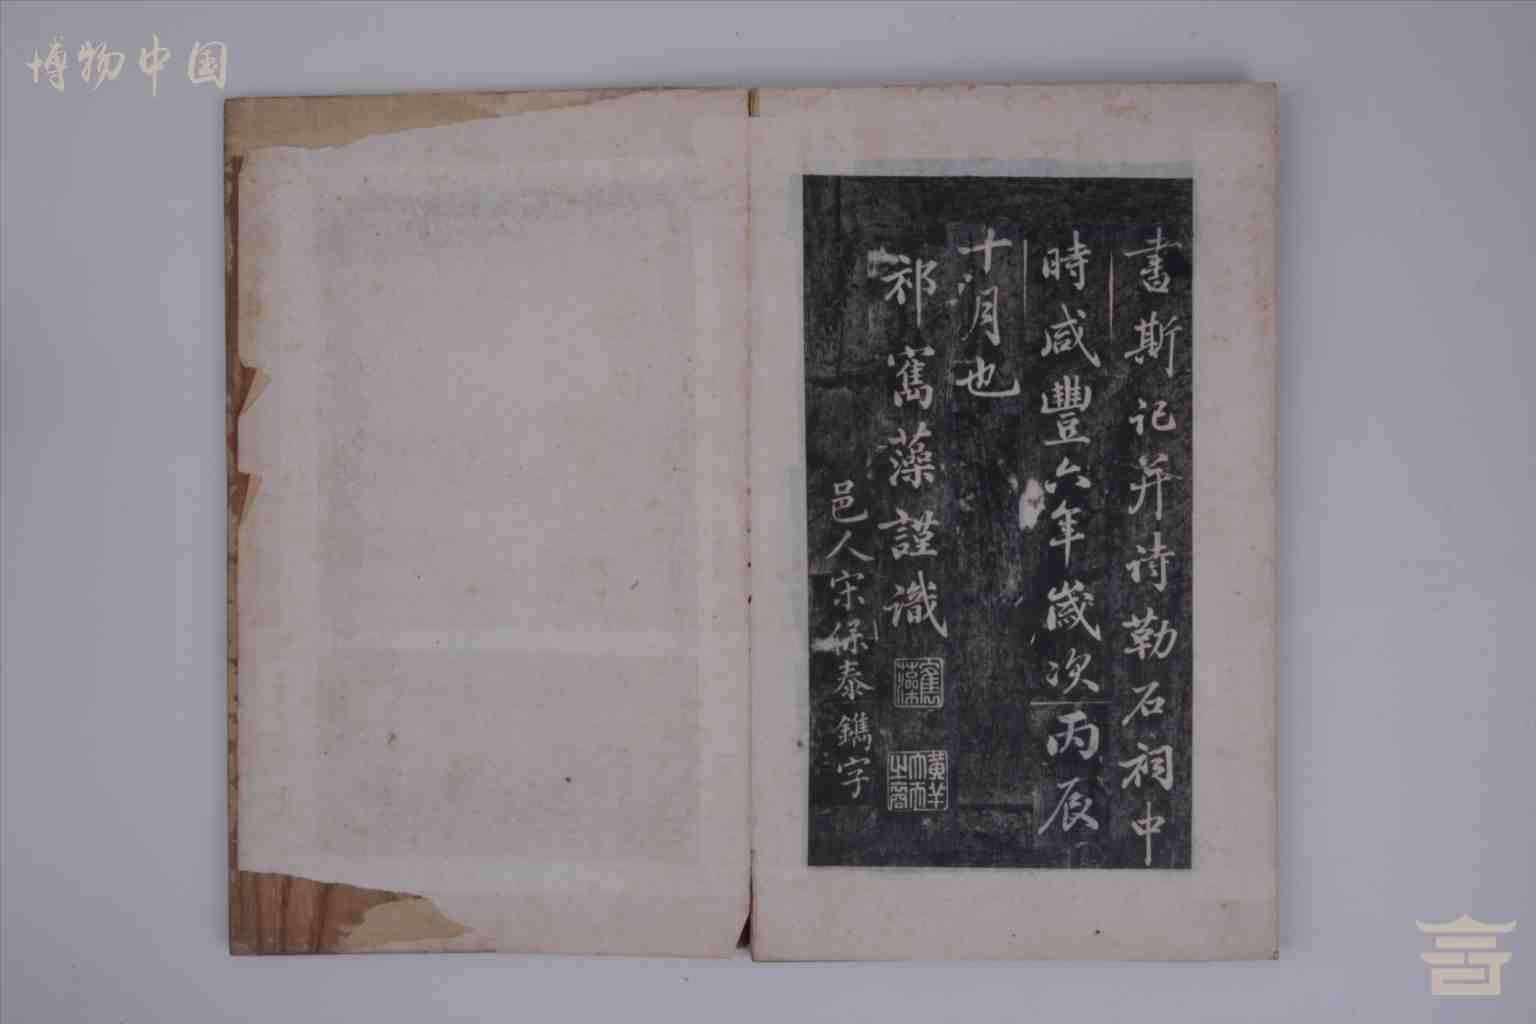 博物中国
书斯记并诗勒石祠中
時咸豐六年歲次丙辰
十月也
祁寯藻謹識
寯藻
邑人宋保泰鐫字